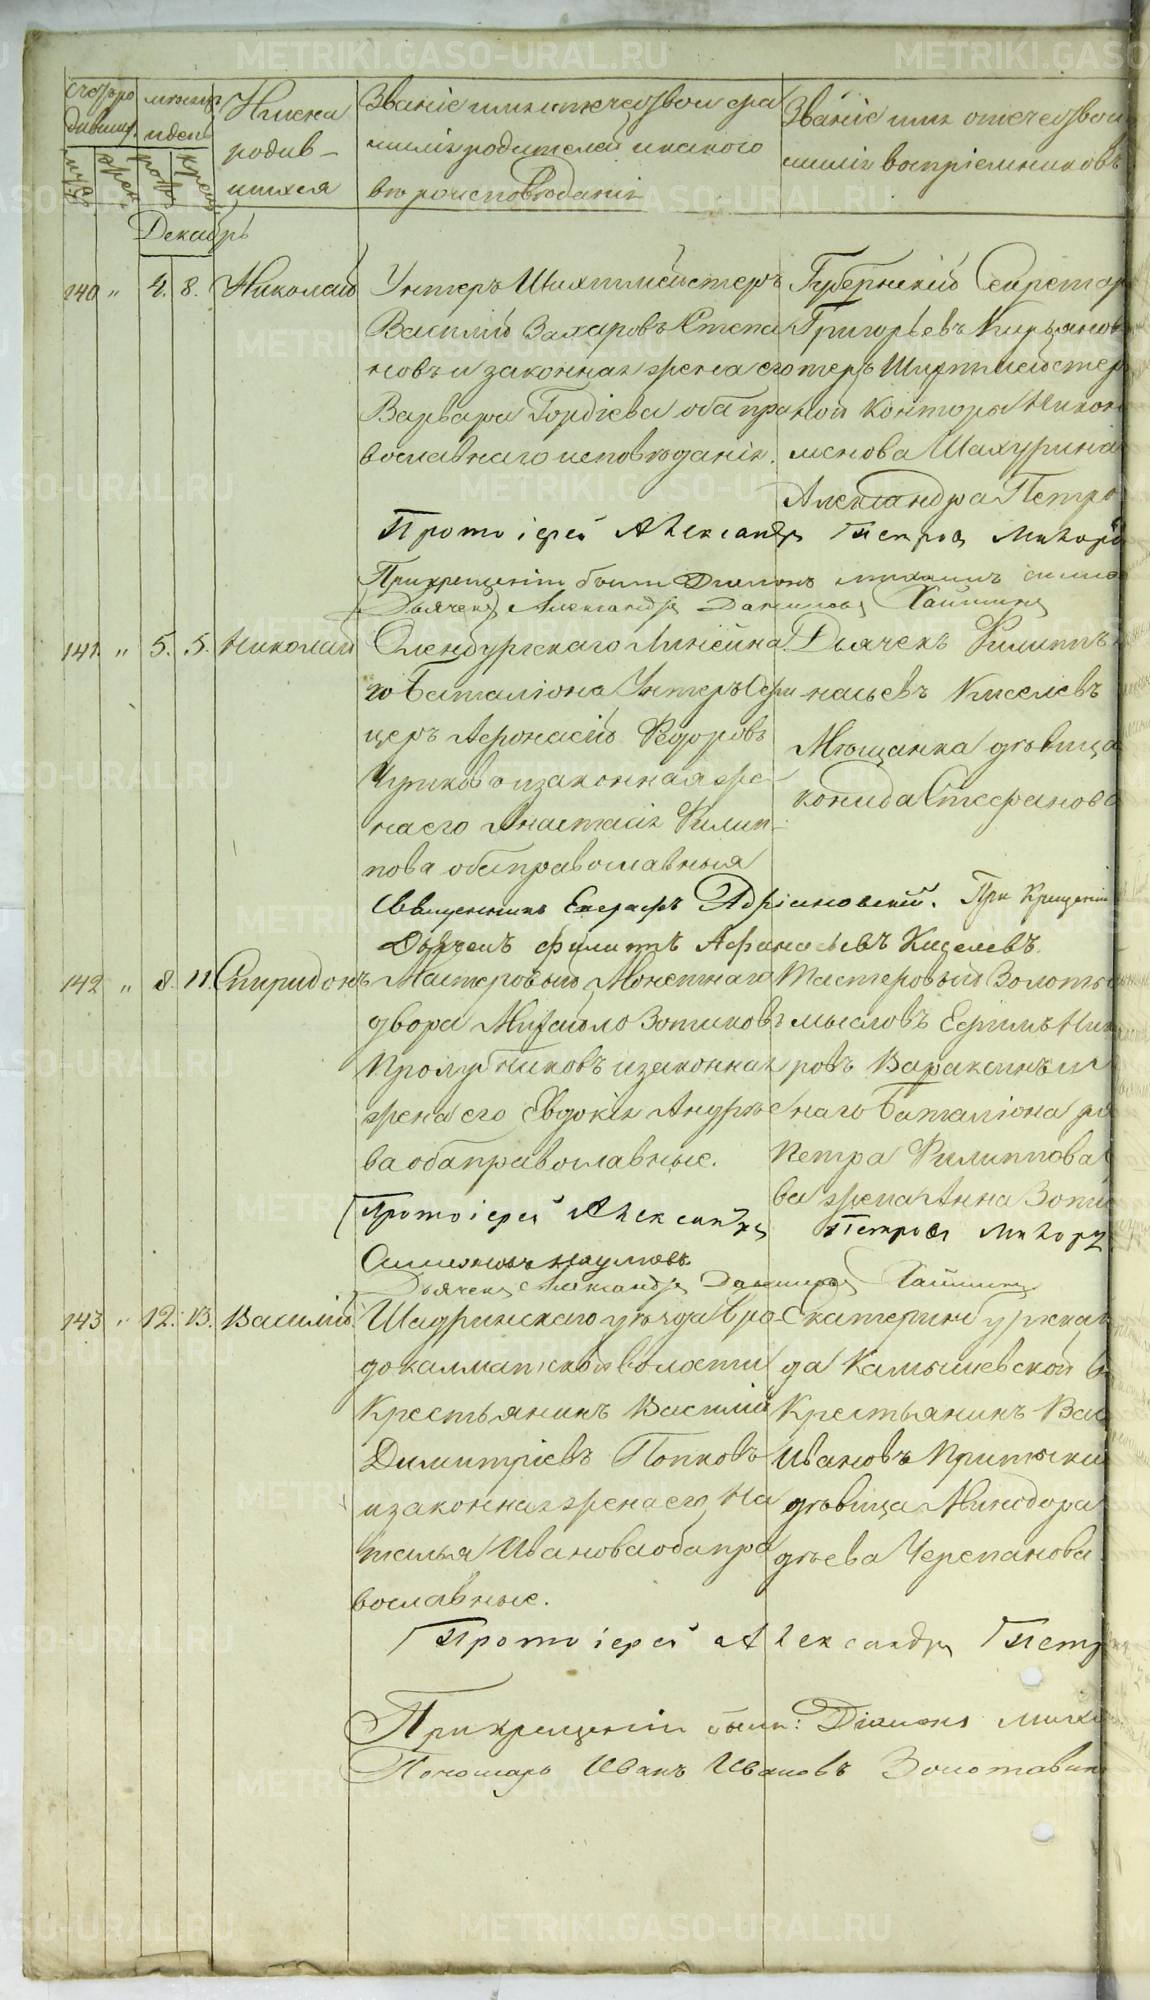 Счетъ ро
дивших.
мѣсяцъ
и день
Имена
родив-
шихся
Званіе имя отечество и фа
милія родителей и какого
вѣроисповѣданія
Званіе имя отечество и
милія воспріемниковъ
муж.
жен.
рожд.
крещ.
Декабрь
140 " 4. 8. Николай
Унтеръ Шихтмейстеръ
Василій Захаровъ Степа
новъ и законная жена его
Варвара Гордіева оба пра
вославнаго исповѣданія.
Губернскій Секретар
Григорьевъ Кирьянов
теръ Шихтмейстер
ной конторы Никон
менова Шахурина
Александра Петро
Протоіерей Александръ Петровъ
При крещеніи были Діаконъ
Дьячекъ Александръ Даниловъ
141. " 5. 5. Николай
Оренбургскаго Линейна
го Баталіона Унтеръ Офи
церъ Афонасій Федоровъ
и законная же
на его Анастасія Филип-
пова оба православныя
Дьячекъ Филиппъ
насьевъ Киселевъ
Мѣщанка дѣвица
конида Стефанова
Священникъ Евграфъ Адріановскій. При Крещеніи
Дьячекъ Филиппъ Афанасьевъ Киселевъ
142 " 8. 11. Спиридонъ
Мастеровый Монетнаго
двора Михаило Зотиковъ
Пролубниковъ и законная
жена его Евдокія Андрѣе
ва оба православные.
Мастеровый Золоты
мысловъ Ефимъ Ник
ровъ Варакинъ и
наго Баталіона
Петра Филиппова
ва жена Анна Зоти
Протоіерей Александръ Петровъ
Симеонъ Наумовъ
Дьячекъ Александръ Даниловъ
143 " 12. 13. Василій
Шадринскаго уѣзда Бро
докалматской волости
Крестьянинъ Василій
Димитріевъ Попковъ
и законная жена его На
талья Иванова оба пра
вославные.
Екатеринбургскаг
да Камышевской
Крестьянинъ Вас
Ивановъ
дѣвица Минодора
дѣева Черепанова
Протоіерей Александръ Петр
При крещеніи были: Діаконъ
Пономарь Иванъ Ивановъ Золотавин